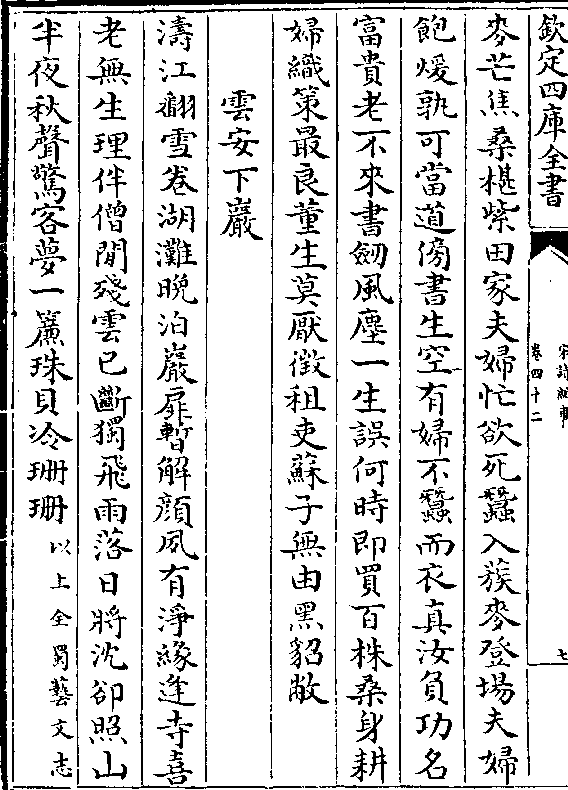 欽定四庫全書
宋詩紀事
卷四十二
七
麥芒焦桑椹紫田家夫婦忙欲死蠶入蔟麥登場夫婦
飽煖孰可當道傍書生空有婦不蠶而衣真汝負功名
富貴老不來書劒風塵一生誤何時即買百株桑身耕
婦織策最良董生莫厭徴租吏蘇子無由黑貂敝
雲安下巖
濤江翻雪卷湖灘晩泊巖扉暫解顔夙有淨緣逢寺喜
老無生理伴僧閒殘雲已斷獨飛雨落日將沈卻照山
半夜秋聲驚客夢一簾珠貝冷珊珊以上全蜀藝文志